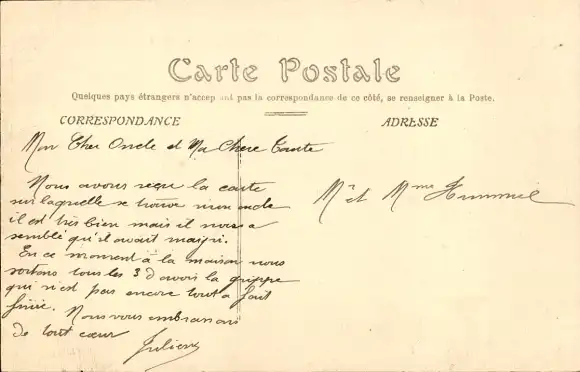 Carte Postale
Quelques pays étrangers n'acceptant pas la correspondance de ce côté, se renseigner à la Poste.
CORRESPONDANCE
ADRESSE
Mon Cher Oncle et Ma Chere Tante
Nous avons reçu la carte
sur laquelle se trouve mon oncle
il est très bien mais il nous a
semblé qu'il avait maigri.
En ce moment à la maison nous
sortons tous les 3 d'avoir la grippe
qui n'est pas encore tout a fait
finie. Nous vous embrassons
de tout cœur
Julien
Mr et Mme Hummel